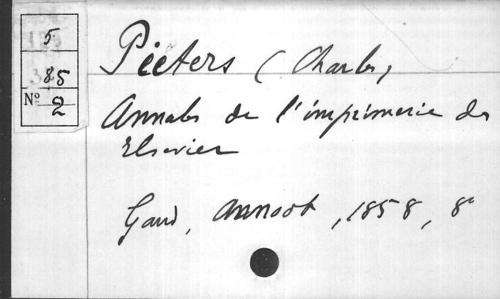 5
385
Nº 2
Pieters (Charles)
Annales de l'imprimerie des
Elsevier
Gand, Annoot, 1858, 8º